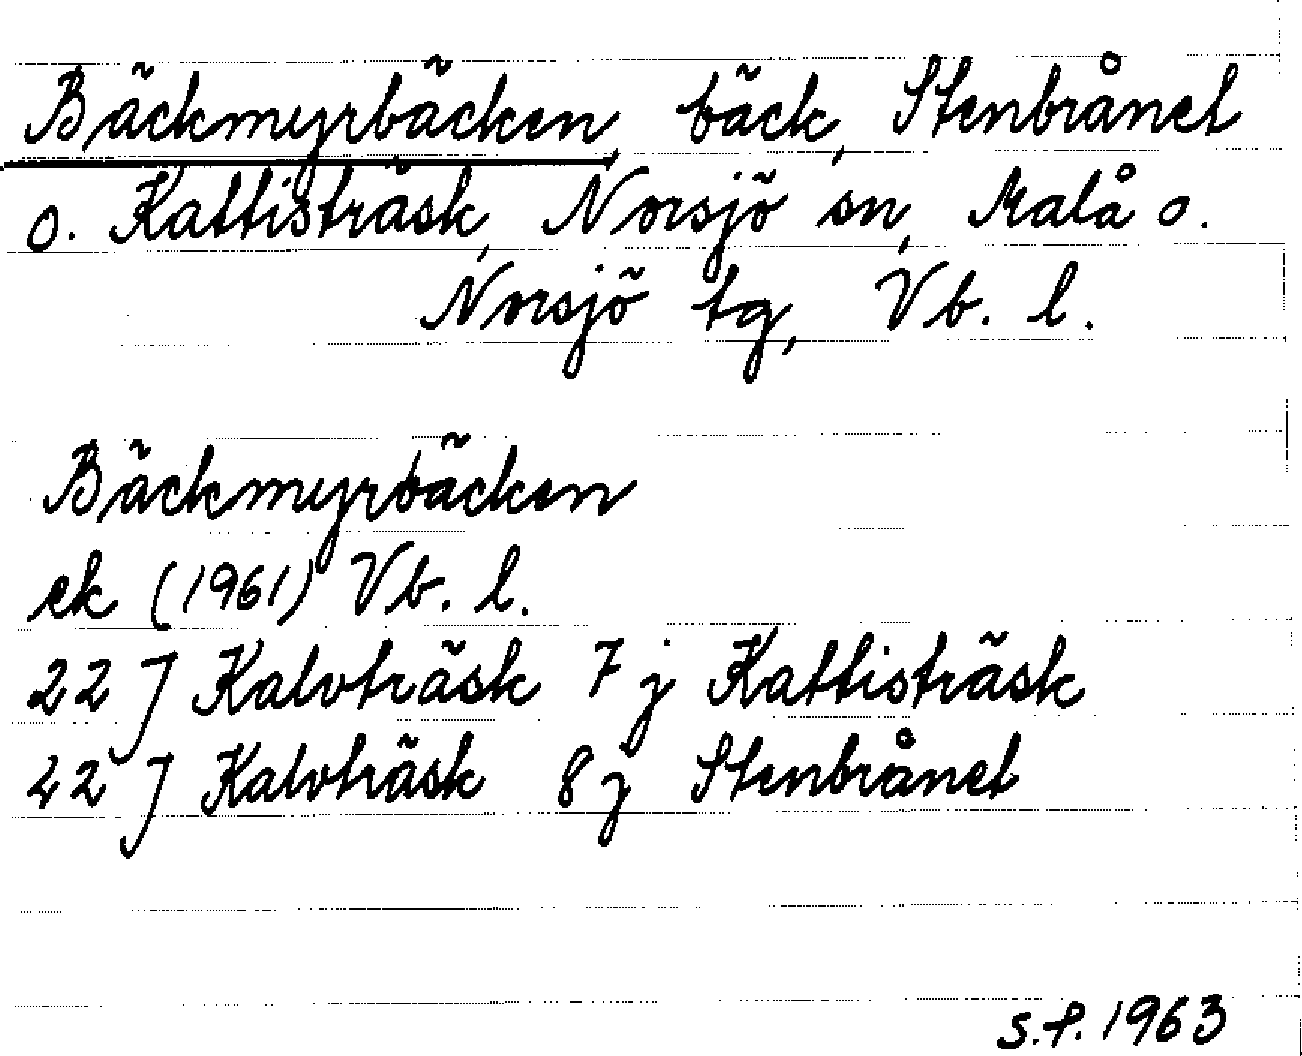 Bäckmyrbäcken, bäck, Stenbrånet
o. Kattisträsk, Norsjö sn, Malå o.
Norsjö tg, Vb. l.
Bäckmyrbäcken
ek (1961) Vb. l.
22 J Kalvträsk 7 j Kattisträsk
22 J Kalvträsk 8 j Stenbrånet
S.F. 1963